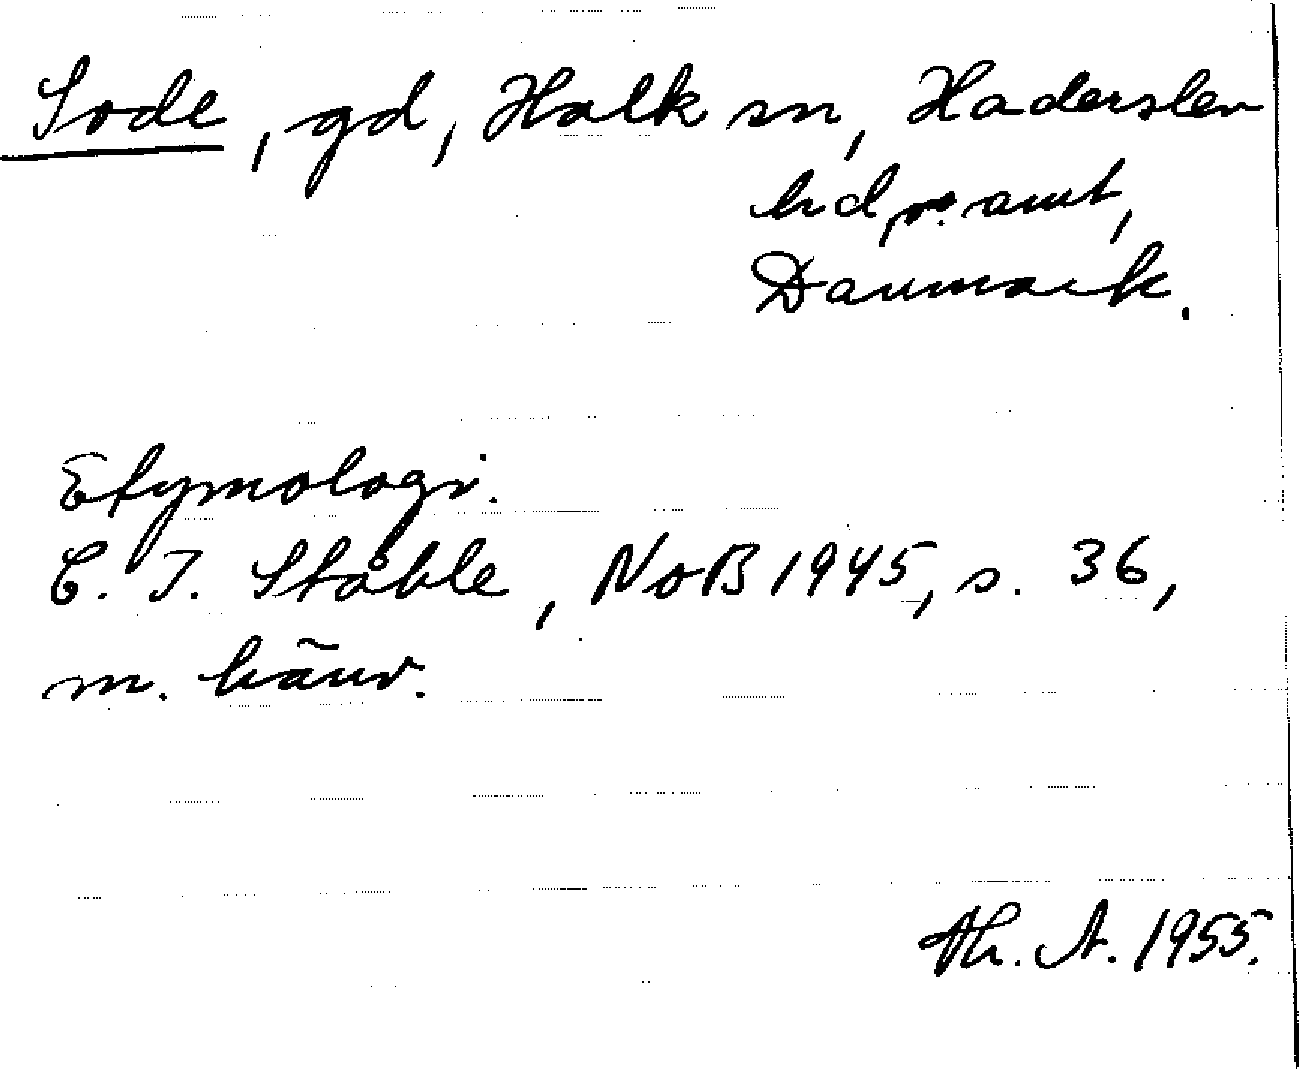 Sode, gd, Halk sn, Haderslev
hd, amt,
Danmark.
Etymologi.
C. I. Ståhle, NoB 1945, s. 36,
m. hänv.
Th. A. 1955.